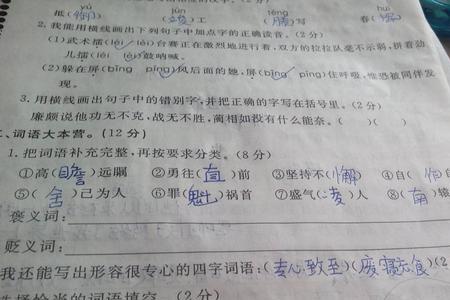 yù jùn téng huī
抵(御) 工 (腾)写 春(晖)
2. 我能用横线画出下列句子中加点字的正确读音。(2分)
(1)武术擂(léi lèi)台赛正在激烈地进行着,双方的拉拉队毫不示弱,拼着劲
儿擂(léi lèi)鼓呐喊。
(2)躲在屏(bǐng píng)风后面的她,屏(bǐng píng)住呼吸,惟恐被同伴发
现。
3. 用横线画出句子中的错别字,并把正确的字写在括号里。(2分)
廉颇说他功无不克,战无不胜,蔺相如没有什么能奈。( )( )
、词语大本营。(12分)
1. 把词语补充完整,再按要求分类。(8分)
①高(瞻)远瞩 ②勇往(直)前 ③坚持不(懈) ④自(
⑤(舍)己为人 ⑥罪(魁)祸首 ⑦盛气(凌)人 ⑧(南)辕
褒义词:
贬义词:
我还能写出形容很专心的四字词语:(专心致至)(废寝忘食)(2
选择恰当的词语填空。(2分)